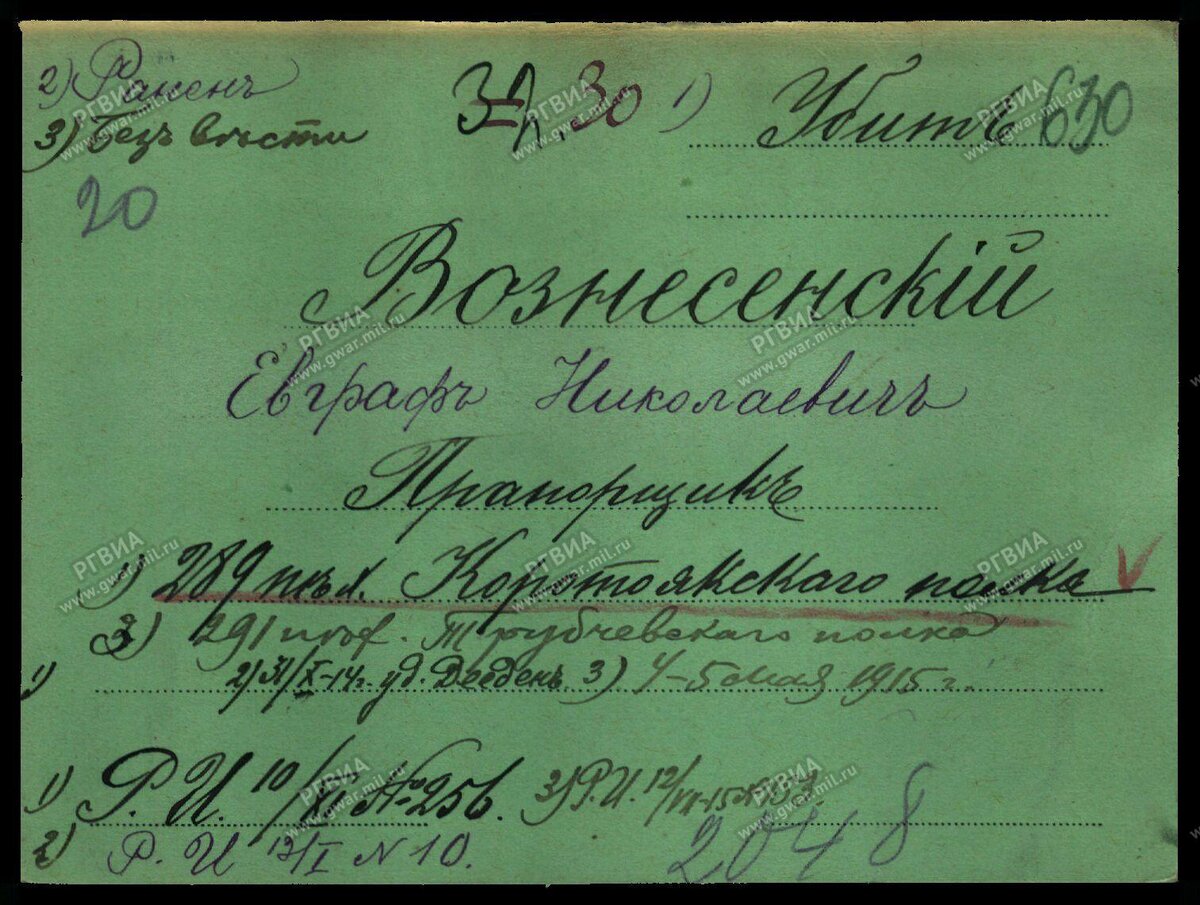 2) Раненъ
3) Безъ вѣсти
30 1) Убитъ 630
20
Вознесенскій
Евграфъ Николаевичъ
Прапорщикъ
1) 289 пѣх. Коротоякскаго полка
3) 291 пѣх. Трубчевскаго полка
1) 2) X-14г. 3) 4-5 мая 1915 г.
1) Р. И. 10/ № 256. 3) Р. И. 12/VII-15
2) Р. И 13/I N 10.
2048
РГВИА
www.gwar.mil.ru